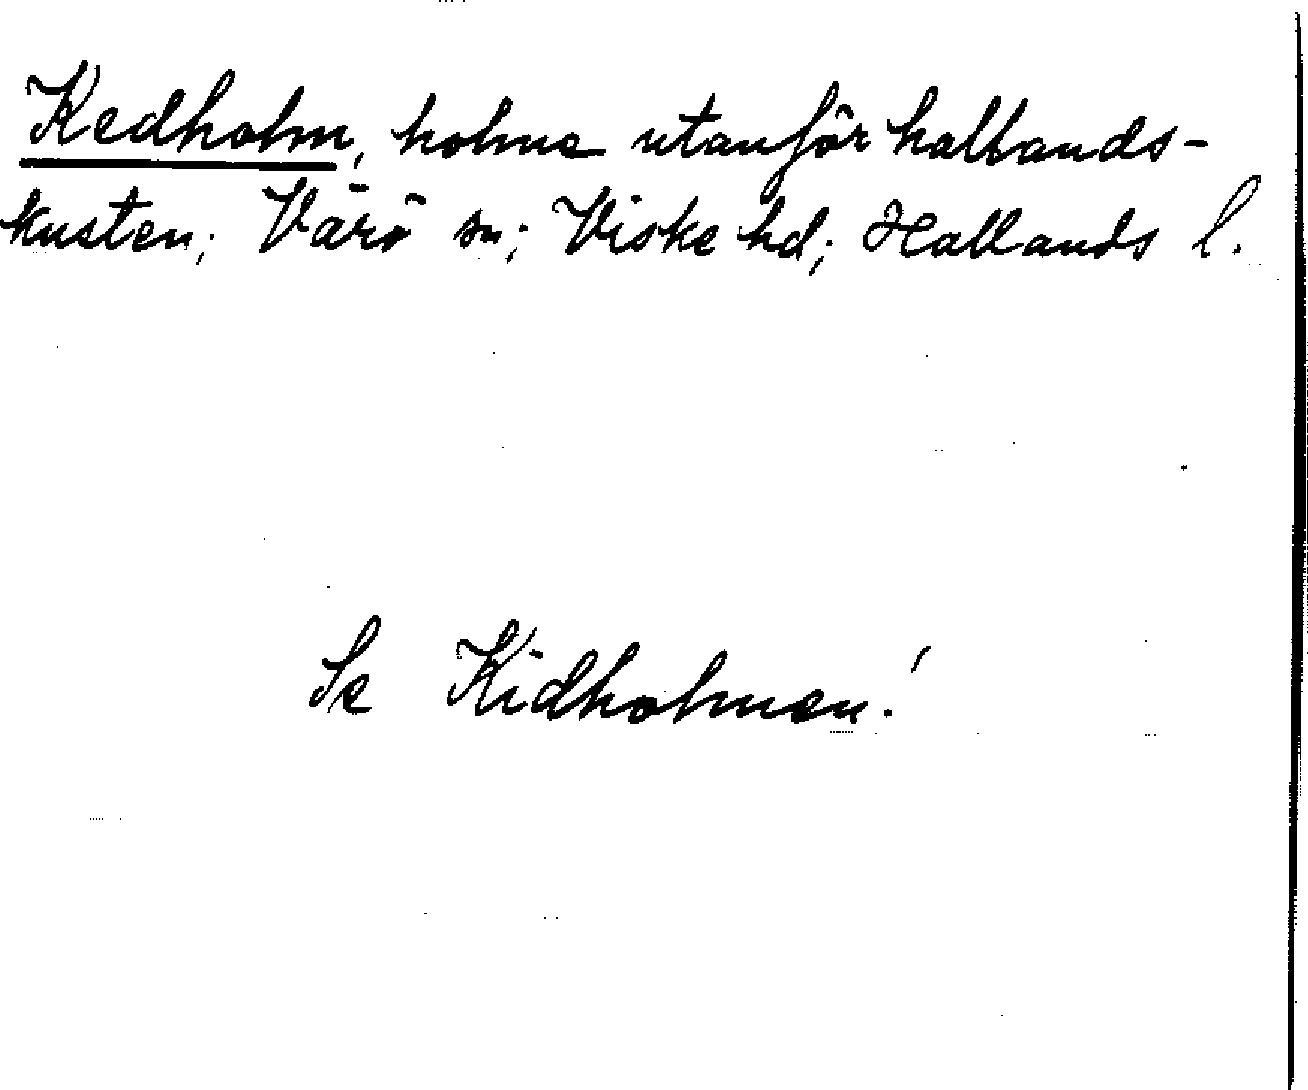 Kedholm, holme utanför hallands-
kusten; Värö sn; Viske hd; Hallands l.
Se Kidholmen!